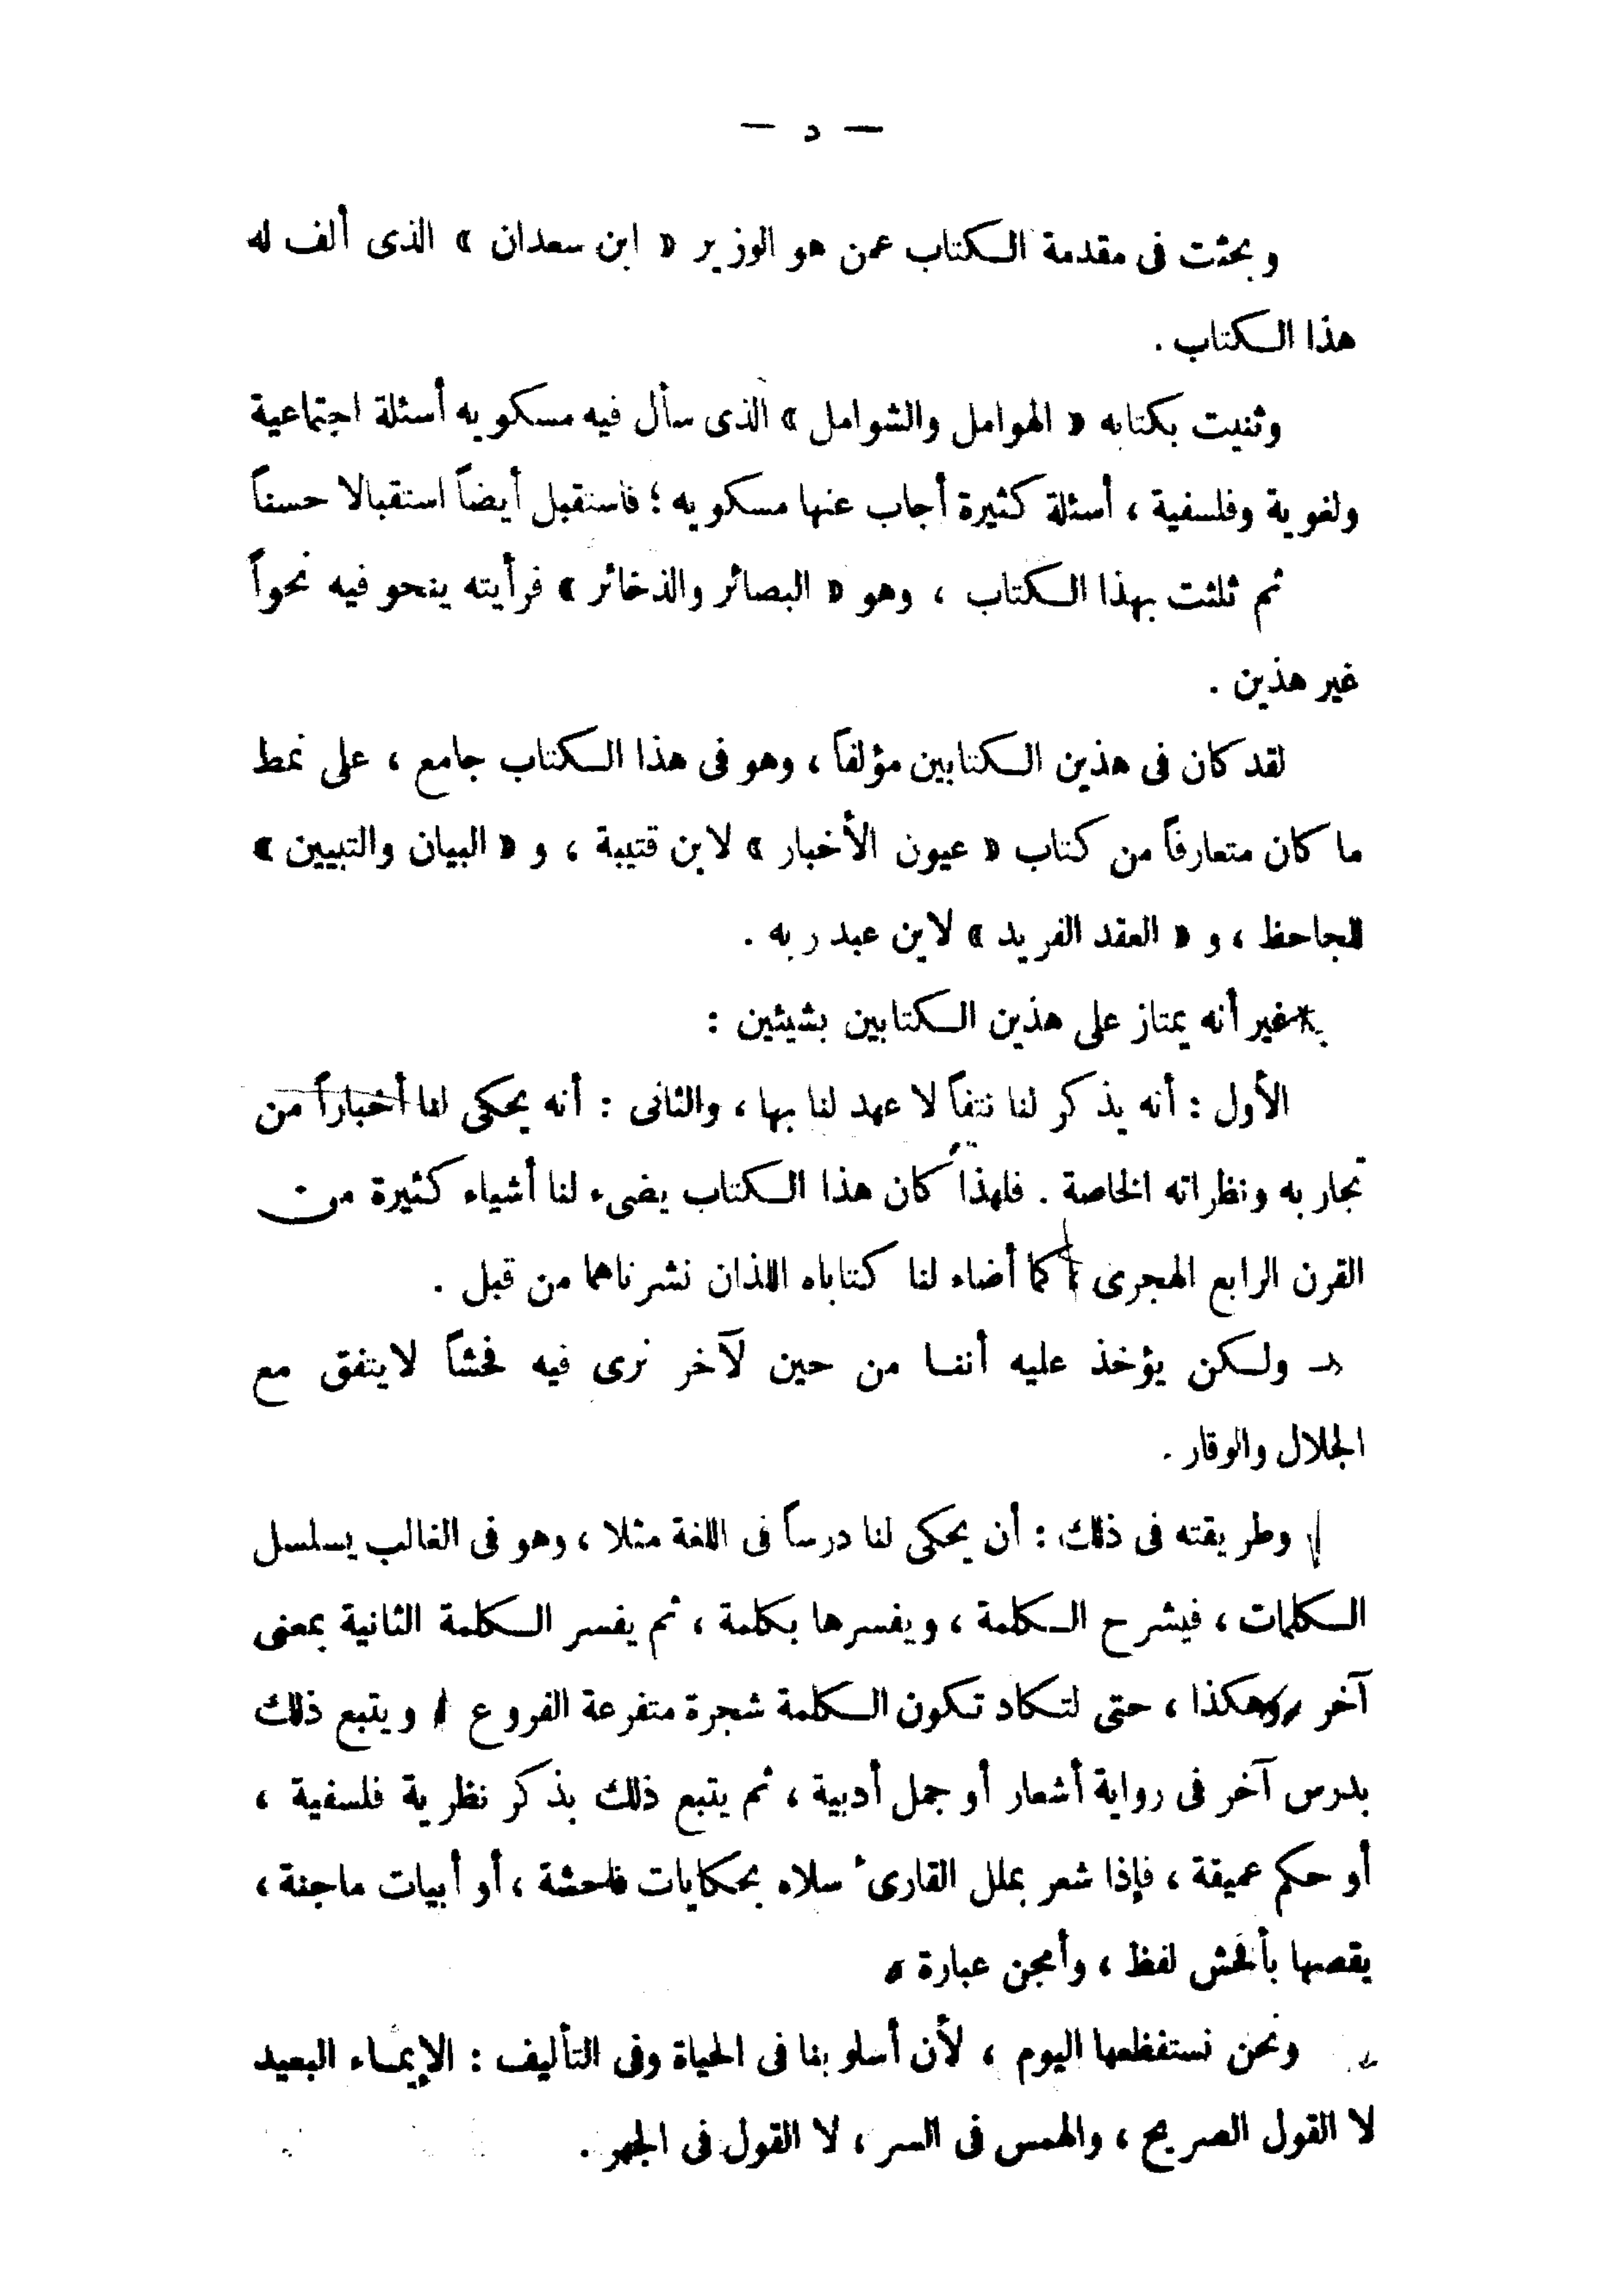 — د —
وبحثت فى مقدمة الكتاب عمن هو الوزير « ابن سعدان » الذى ألف له
هذا الكتاب .
وثنيت بكتابه « الهوامل والشوامل » الذى سأل فيه مسكويه أسئلة اجتماعية
ولغوية وفلسفية ، أسئلة كثيرة أجاب عنها مسكويه ؛ فاستقبل أيضاً استقبالا حسناً
ثم ثلثت بهذا الكتاب ، وهو « البصائر والذخائر » فرأيته ينحو فيه نحواً
غير هذين .
لقد كان فى هذين الكتابين مؤلفاً ، وهو فى هذا الكتاب جامع ، على نمط
ما كان متعارفاً من كتاب « عيون الأخبار » لابن قتيبة ، و « البيان والتبيين »
للجاحظ ، و « العقد الفريد » لابن عبد ربه .
غير أنه يمتاز على هذين الكتابين بشيئين :
الأول : أنه يذكر لنا نتفاً لا عهد لنا بها ، والثانى : أنه يحكى لنا أخباراً من
تجاربه ونظراته الخاصة . فلهذا كان هذا الكتاب يضىء لنا أشياء كثيرة من
القرن الرابع الهجرى ، كما أضاء لنا كتاباه اللذان نشرناهما من قبل .
ولكن يؤخذ عليه أننا من حين لآخر نرى فيه فحشاً لا يتفق مع
الجلال والوقار .
وطريقته فى ذلك : أن يحكى لنا درساً فى اللغة مثلا ، وهو فى الغالب يسلسل
الكلمات ، فيشرح الكلمة ، ويفسرها بكلمة ، ثم يفسر الكلمة الثانية بمعنى
آخر وهكذا ، حتى لتكاد تكون الكلمة شجرة متفرعة الفروع ، ويتبع ذلك
بدرس آخر فى رواية أشعار أو جمل أدبية ، ثم يتبع ذلك بذكر نظرية فلسفية ،
أو حكم عميقة ، فإذا شعر بملل القارئ سلاه بحكايات فاحشة ، أو أبيات ماجنة ،
يقصها بأفحش لفظ ، وأمجن عبارة .
ونحن نستفظعها اليوم ، لأن أسلوبنا فى الحياة وفى التأليف : الإيماء البعيد
لا القول الصريح ، والهمس فى السر ، لا القول فى الجهر .